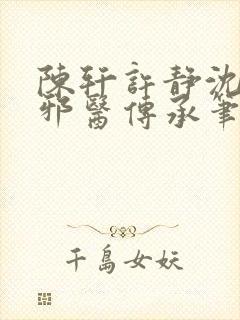 陳軒許靜沈
邪醫傳承筆
千島女妖